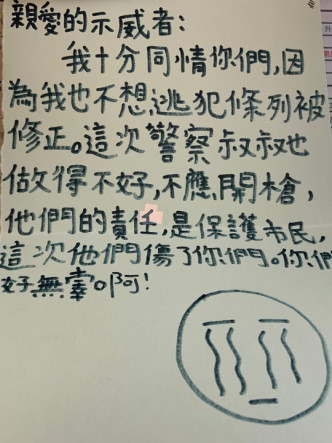 親愛的示威者：
我十分同情你們，因
為我也不想逃犯條列被
修正。這次警察叔叔也
做得不好，不應開槍，
他們的責任，是保護市民，
這次他們傷了你們。你們
好無辜啊！